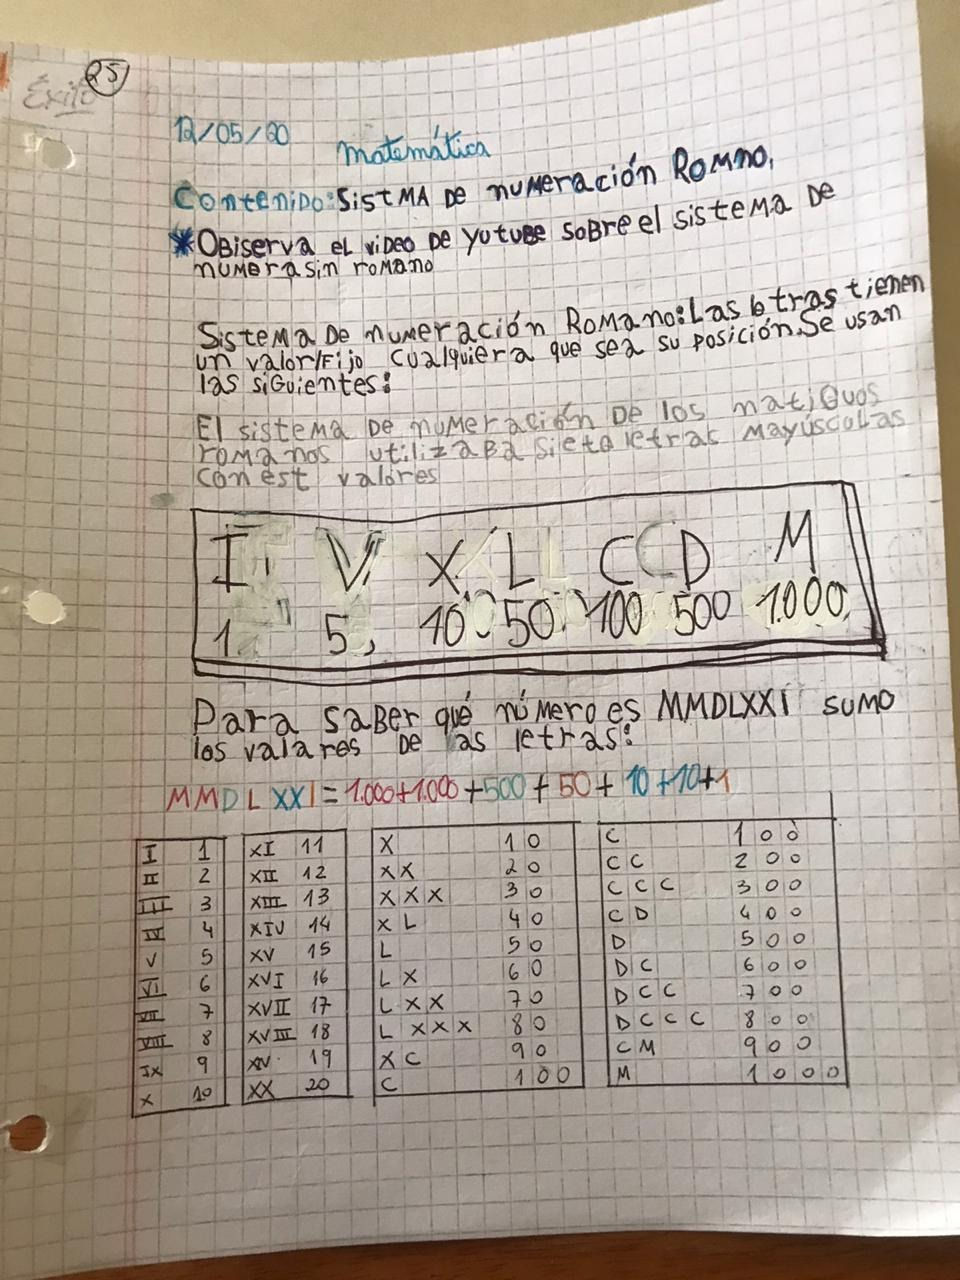 25
Éxito
12/05/20
Matemática
Contenido: SistMA DE numeración Romno.
*OBiserva el viDeo De yutuBe soBre el sistema De
numerasin romano
Sistema De numeración Romano: Las letras tienen
un valor/Fijo cualquiera que sea su posición. Se usan
las siGuientes:
El sistema De numeración De los natiguos
romanos utilizaBa siete letras mayúscolas
con est valores
I V X L C D M
1 5 10 50 100 500 1.000
Para saber qué número es MMDLXXI sumo
los valares De las letras:
MMDLXXI = 1.000+1.000+500+50+10+10+1
I 1 XI 11 X 10 C 100
II 2 XII 12 XX 20 CC 200
III 3 XIII 13 XXX 30 CCC 300
IV 4 XIV 14 XL 40 CD 400
V 5 XV 15 L 50 D 500
VI 6 XVI 16 LX 60 DC 600
VII 7 XVII 17 LXX 70 DCC 700
VIII 8 XVIII 18 LXXX 80 DCCC 800
IX 9 XIV 19 XC 90 CM 900
X 10 XX 20 C 100 M 1000